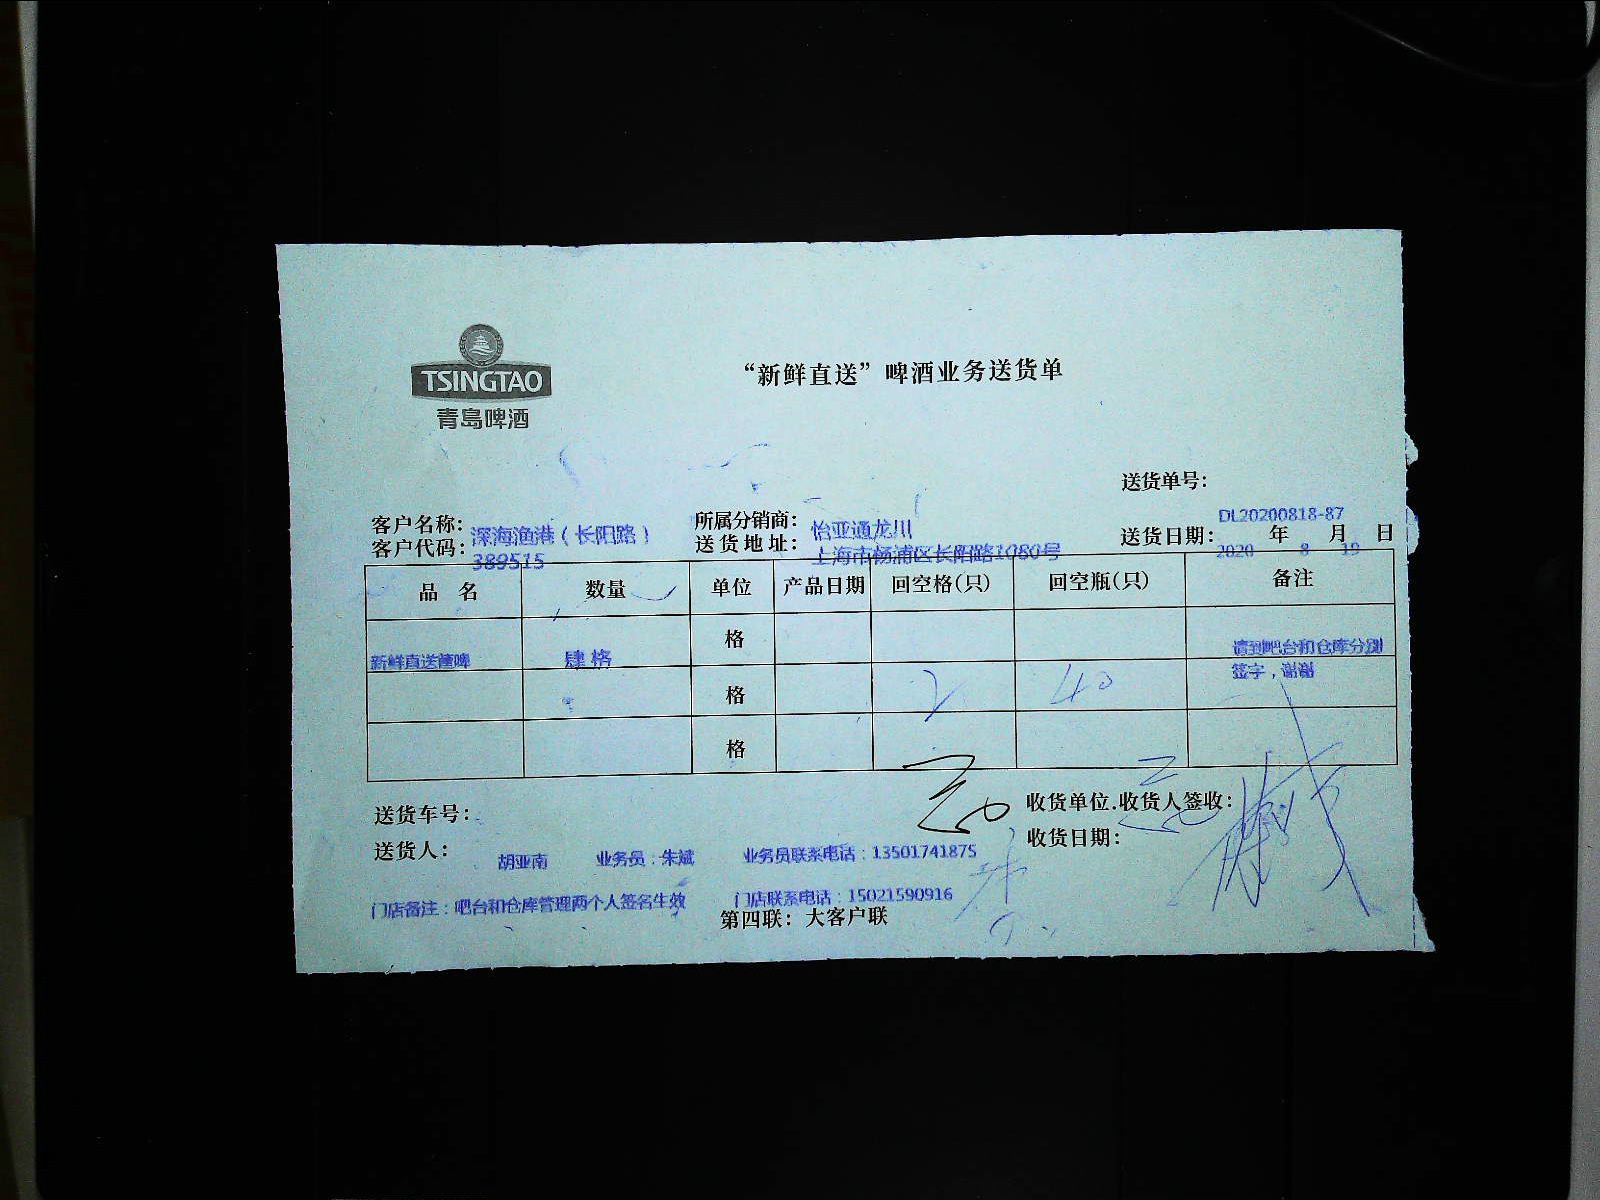 TSINGTAO
青島啤酒
“新鲜直送”啤酒业务送货单
送货单号：
DL20200818-87
客户名称：深海渔港（长阳路） 所属分销商：怡亚通龙川 送货日期：2020 年 8 月 19 日
客户代码：389515 送货地址：上海市杨浦区长阳路1080号
品 名 数量 单位 产品日期 回空格(只) 回空瓶(只) 备注
新鲜直送 肆格 格 请到吧台和仓库分别
格 2 40 签字，谢谢
格
送货车号： 收货单位.收货人签收：
送货人： 胡亚南 业务员：朱斌 业务员联系电话：13501741875 收货日期：
门店备注：吧台和仓库管理两个人签名生效 门店联系电话：15021590916
第四联：大客户联